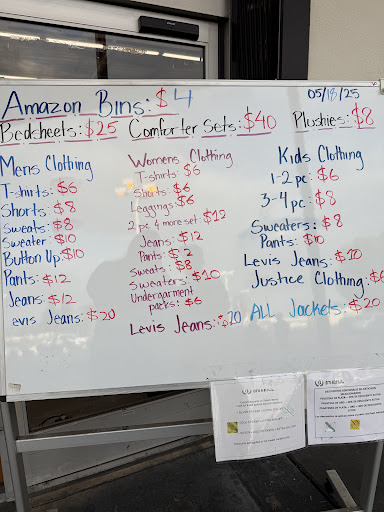 05/18/25
Amazon Bins: $4
Bedsheets: $25 Comforter Sets: $40 Plushies: $8
Mens Clothing
T-shirts: $6
Shorts: $8
Sweats: $8
Sweater: $10
Button Up: $10
Pants: $12
Jeans: $12
evis Jeans: $20
Womens Clothing
T-shirts: $6
Shorts: $6
Leggings: $6
2 pc & more set: $12
Jeans: $12
Pants: $12
Sweats: $8
Sweaters: $10
Undergarment
packs: $6
Levis Jeans: $20
Kids Clothing
1-2 pc: $6
3-4 pc: $8
Sweaters: $8
Pants: $10
Levis Jeans: $10
Justice Clothing: $6
ALL Jackets: $20